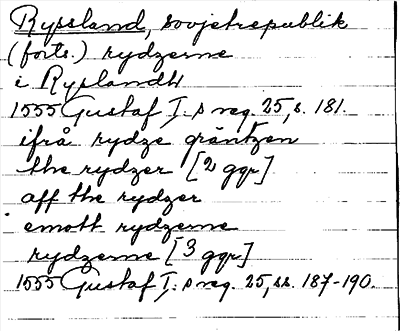 Ryssland, sovjetrepublik
(forts.) rydzerne
i Ryslandh
1555 Gustaf I:s reg. 25, s. 181.
ifrå rydze gräntzen
the rydzer [2 ggr]
aff the rydzer
emott rydzerne
rydzerne [3 ggr]
1555 Gustaf I:s reg. 25, ss. 187-190.